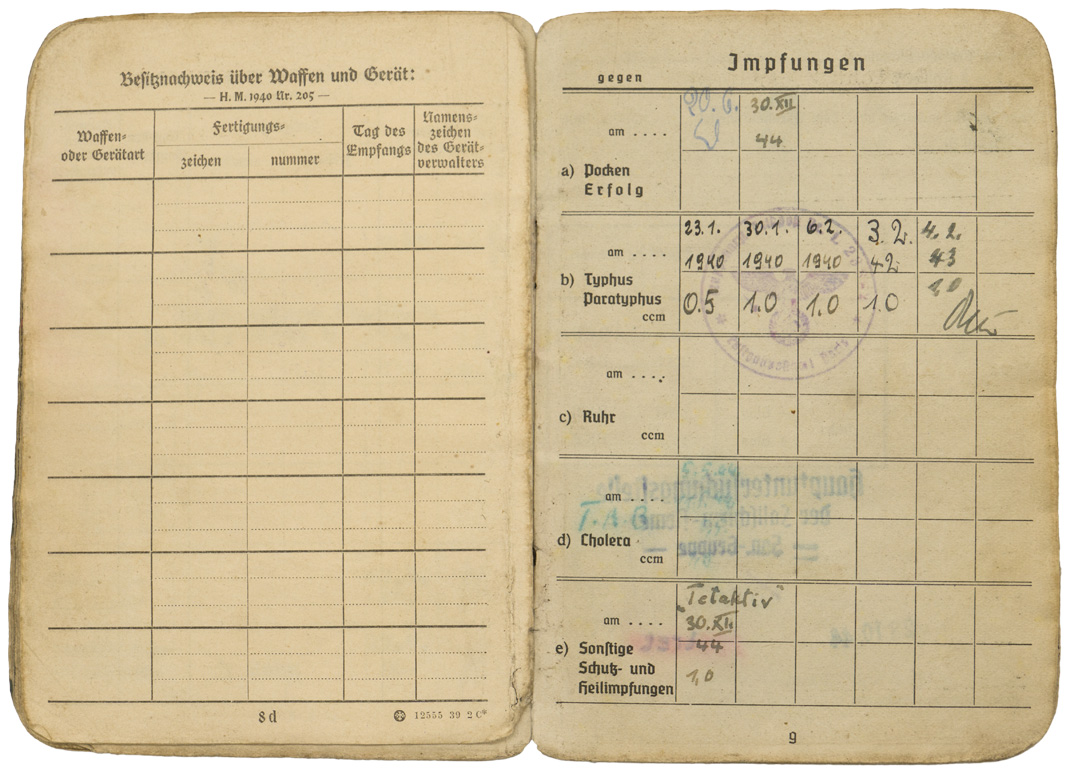 Besitznachweis über Waffen und Gerät:
— H. M. 1940 Nr. 205 —
Waffen-
oder Gerätart
Fertigungs-
zeichen
nummer
Tag des
Empfangs
Namens-
zeichen
des Gerät-
verwalters
8d
12555 39 2 C
Impfungen
gegen
20. 6. 30. XII
am . . . .
44
a) Pocken
Erfolg
23.1. 30.1. 6.2. 3.2. 4.2.
am . . . . 1940 1940 1940 42 43
b) Typhus
Paratyphus
ccm
0.5 1.0 1.0 1.0 1,0
am . . . .
c) Ruhr
ccm
am . . . .
T.A.B
d) Cholera
ccm
"Tetaktiv"
am . . . . 30. XII
44
e) Sonstige
Schutz- und
Heilimpfungen
1,0
9